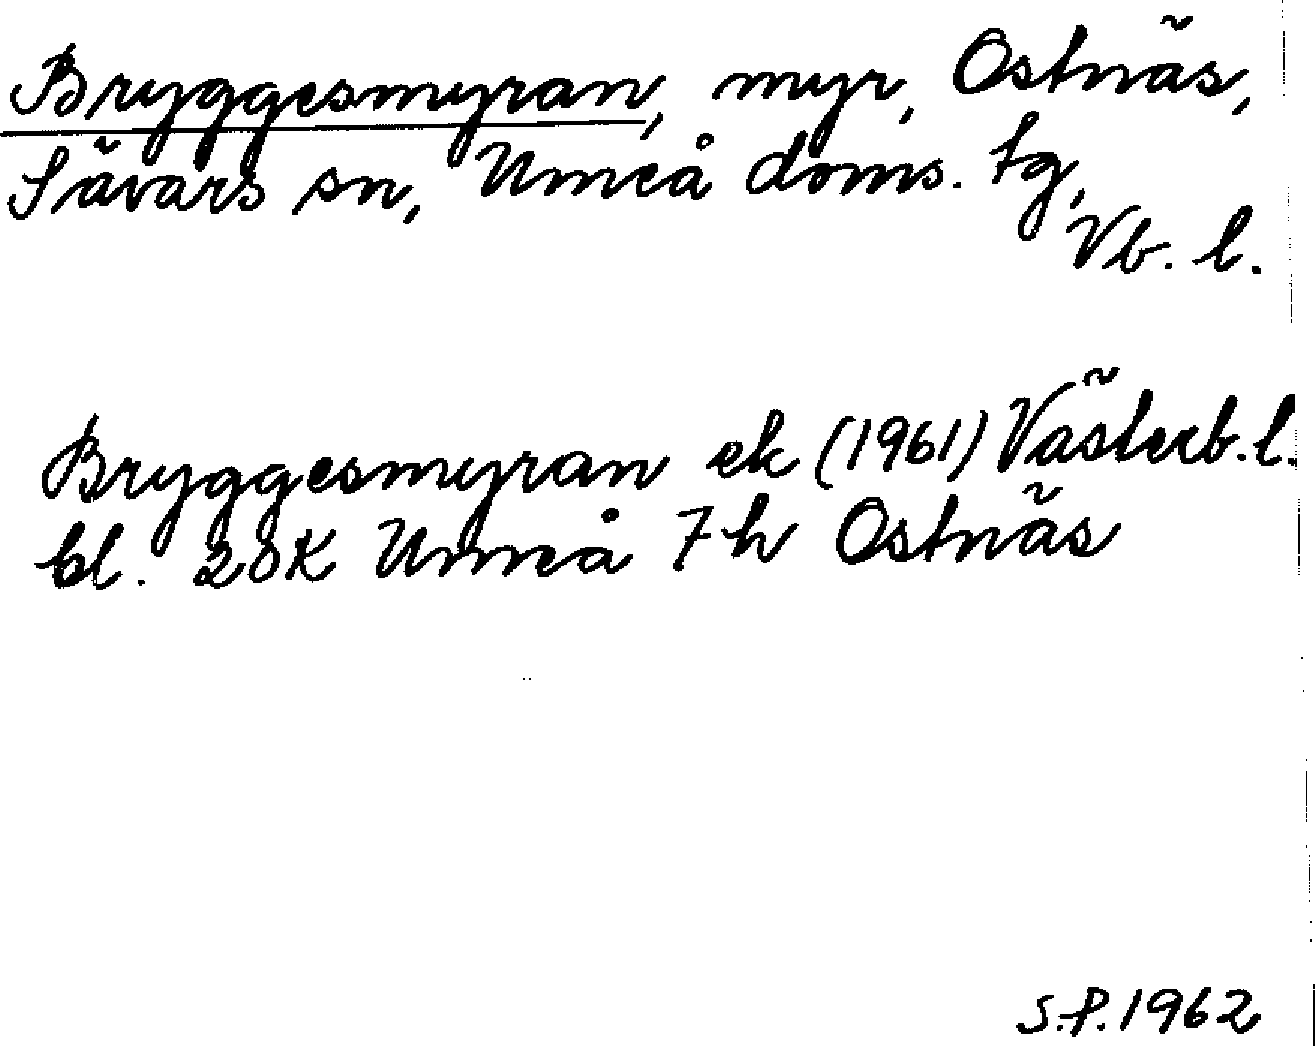 Bryggesmyran, myr, Ostnäs,
Sävars sn, Umeå doms. tg,
Vb. l.
Bryggesmyran ek (1961) Västerb. l.
bl. 20K Umeå 7h Ostnäs
S.P. 1962